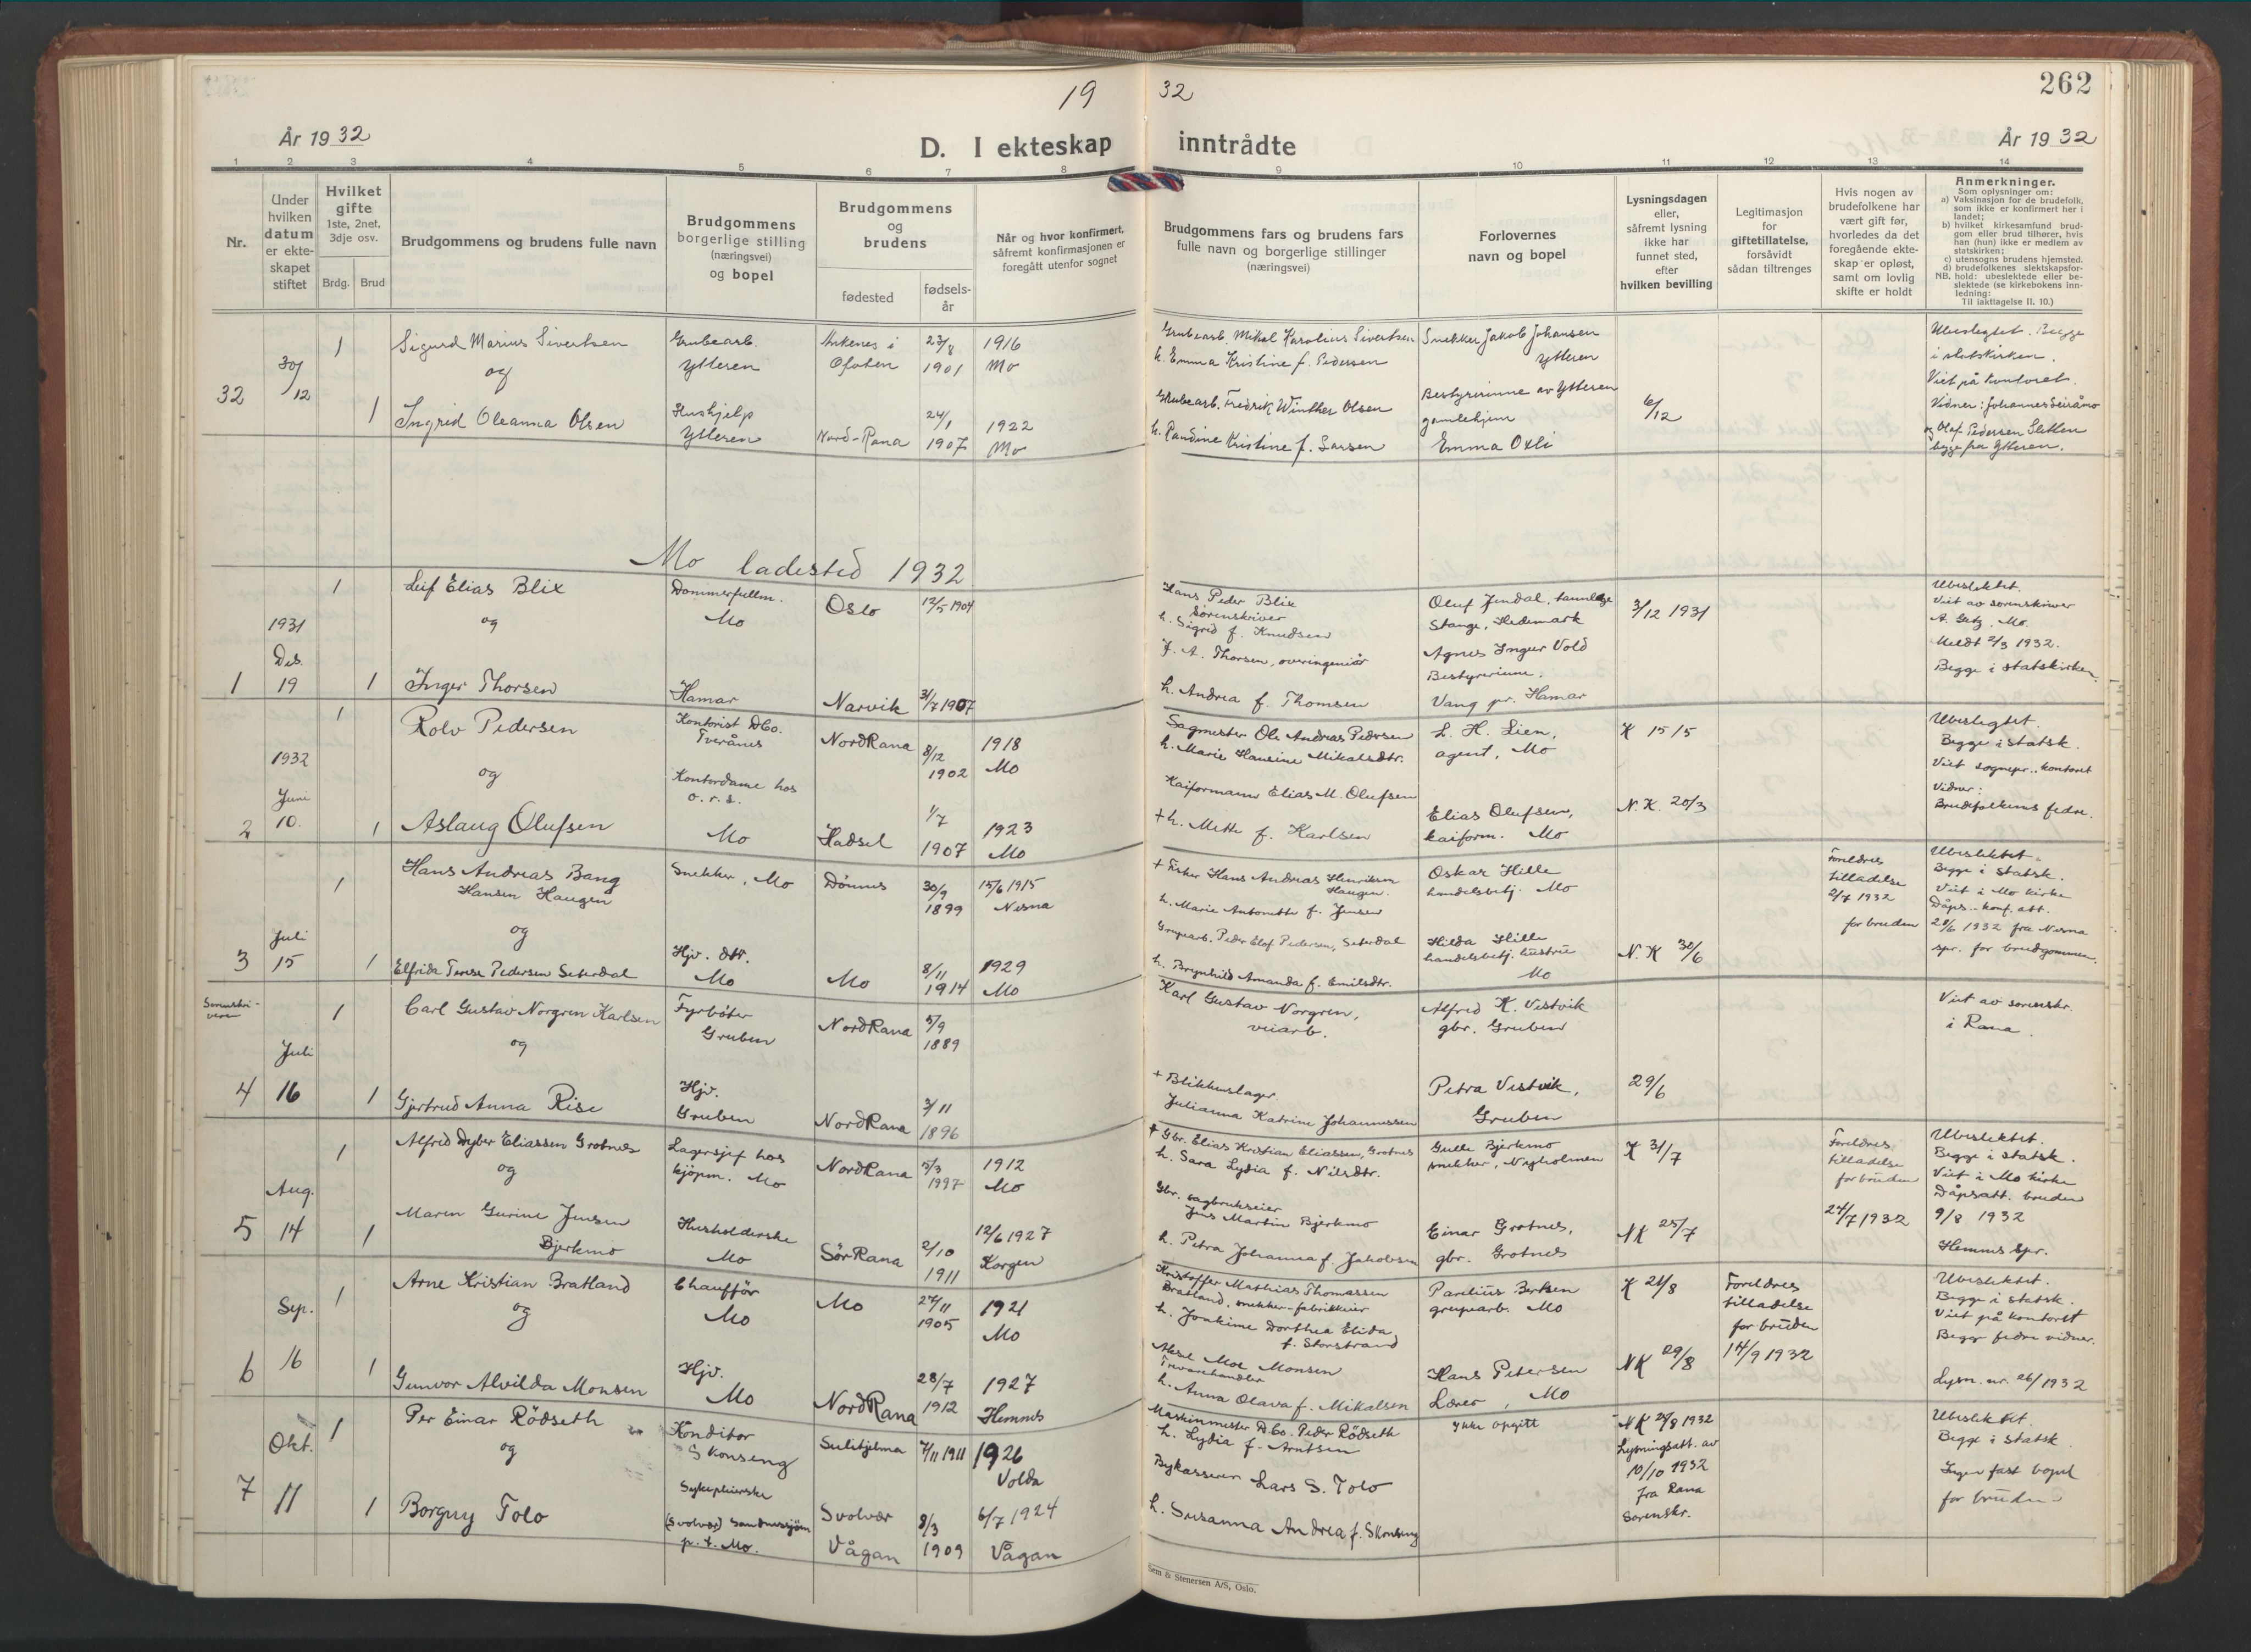 19 32
262
År 1932
D. I ekteskap inntrådte
År 1932
1 2 3 4 5 6 7 8 9 10 11 12 13 14
Nr.
Under hvilken datum er ekteskapet stiftet
Hvilket gifte 1ste, 2net, 3dje osv.
Brdg. Brud
Brudgommens og brudens fulle navn
Brudgommens borgerlige stilling (næringsvei) og bopel
Brudgommens og brudens
fødested
fødselsår
Når og hvor konfirmert, såfremt konfirmasjonen er foregått utenfor sognet
Brudgommens fars og brudens fars fulle navn og borgerlige stillinger (næringsvei)
Forlovernes navn og bopel
Lysningsdagen eller, såfremt lysning ikke har funnet sted, efter hvilken bevilling
Legitimasjon for giftetillatelse, forsåvidt sådan tiltrenges
Hvis nogen av brudefolkene har vært gift før, hvorledes da det foregående ekteskap er opløst, samt om lovlig skifte er holdt
Anmerkninger.
Som oplysninger om:
a) Vaksinasjon for de brudefolk, som ikke er konfirmert her i landet;
b) hvilket kirkesamfund brudgom eller brud tilhører, hvis han (hun) ikke er medlem av statskirken;
c) utensogns brudens hjemsted.
d) brudefolkenes slektskapsforhold: ubeslektede eller beslektede (se kirkebokens innledning:
NB.
Til iakttagelse II, 10.)
32
30/12
1
Sigurd Marius Sivertsen
og
1
Ingrid Oleanna Olsen
Grubearb.
Ytteren
Hushjelp
Ytteren
Ankenes i
Ofoten
Nord-Rana
23/8
1901
24/1
1907
1916
Mo
1922
Mo
Grubearb. Mikal Karolius Sivertsen
h. Emma Kristine f. Pedersen
Grubearb. Fredrik Winther Olsen
h. Paudine Kristine f. Larsen
Snekker Jakob Johansen
Ytteren
Bestyrerinne av Ytteren
gamlehjem
Emma Oxli
6/12
Ubeslegtet. Begge
i statskirken.
Viet på kontoret.
Vidner: Johannes
og Olaf Pedersen Sletten
begge fra Ytteren.
Mo ladested 1932
1
1931
Des.
19
1
Leif Elias Blix
og
1
Inger Thorsen
Dommerfullm.
Mo
Hamar
Oslo
Narvik
12/5 1904
31/7 1907
Hans Peder Blix
Sorenskriver
h. Sigrid f. Knudsen
J. A. Thorsen, overingeniør
h. Andrea f. Thomsen
Oluf Jendal, tannlæge
Stange, Hedemark
Agnes Inger Vold
Bestyrerinne,
Vang pr. Hamar
3/12 1931
Ubeslektet.
Viet av sorenskriver
A. Getz, Mo.
Meldt 2/3 1932.
Begge i statskirken.
2
1932
Juni
10.
1
Rolv Pedersen
og
1
Aslaug Olufsen
Kontorist D Co.
Tverånes
Kontordame hos
o. r. s.
Mo
NordRana
Hadsel
8/12
1902
1/7
1907
1918
Mo
1923
Mo
Sagmester Ole Andreas Pedersen
h. Marie Hansine Mikalsdtr.
Kaiformann Elias M. Olufsen
+ h. Mette f. Karlsen
L. H. Lien,
agent, Mo
Elias Olufsen,
kaiform. Mo
K 15/5
N. K. 20/3
Ubeslegtet.
Begge i statsk.
Viet sognepr. kontoret
Vidner:
Brudefolkens fedre.
3
Juli
15
1
Hans Andreas Bang
Hansen Haugen
og
1
Elfrida Terese Pedersen Seterdal
Snekker, Mo
Hjv. dtr.
Mo
Dønnes
Mo
30/9
1899
8/11
1914
15/6 1915
Nesna
1929
Mo
+ Fisker Hans Andreas Henriksen
Haugen.
h. Marie Antonette f. Jensen
Grupearb. Peder Elof Pedersen, Seterdal
h. Brynhild Amanda f. Emilsdtr.
Oskar Hille
handelsbetj. Mo
Hilda Hille
handelsbetj. hustru
Mo
N. K 30/6
Foreldres
tilladelse
2/7 1932
for bruden
Ubeslektet.
Begge i statsk.
Viet i Mo kirke
Dåps.- konf. att.
28/6 1932 fra Nesna
spr. for brudgommen.
Sorenskriveren
4
Juli
16
1
Carl Gustav Norgren Karlsen
og
1
Gjertrud Anna Rise
Fyrbøter
Gruben
Hjv.
Gruben
NordRana
NordRana
5/9
1889
3/11
1896
Karl Gustav Norgren,
veiarb.
+ Blikkenslager
Julianna Katrine Johannessen
Alfred K. Vestvik
gbr. Gruben
Petra Vestvik,
Gruben
29/6
Viet av sorenskr.
i Rana.
5
Aug.
14
1
Alfred Dyber Eliassen Grotnes
og
1
Maren Gurine Jensen
Bjerkmo
Lagersjef hos
kjøpm. Mo
Husholderske
Mo
NordRana
SørRana
5/3
1997
2/10
1911
1912
Mo
12/6 1927
Korgen
+ Gbr. Elias Kristian Eliassen, Grotnes
h. Sara Lydia f. Nilsdtr.
Gbr. sagbrukseier
Jens Martin Bjerkmo
h. Petra Johanna f. Jakobsen
Gulle Bjerkmo
snekker, Nyholmen
Einar Grotnes,
gbr. Grotnes
K 31/7
NK 25/7
Foreldres
tilladelse
for bruden
24/7 1932
Ubeslektet.
Begge i statsk.
Viet i Mo kirke
Dåpsatt. bruden
9/8 1932
Hemnes spr.
6
Sep.
16
1
Arne Kristian Bratland
og
1
Gunvor Alvilda Monsen
Chauffør
Mo
Hjv.
Mo
Mo
NordRana
27/11
1905
28/7
1912
1921
Mo
1927
Hemnes
Kristoffer Mathias Thomassen
Bratland, snekker-fabrikkeier
h. Joakime Dorthea Elida,
f. Storstrand
Aksel Moe Monsen
Trevarehandler
h. Anna Olava f. Mikalsen
Parelius Berksen
grupearb. Mo
Hans Petersen
Lærer, Mo
K 21/8
NK 29/8
Foreldres
tilladelse
for bruden
14/9 1932
Ubeslektet.
Begge i statsk.
Viet på kontoret
Begge fedre vidner.
Lysn. nr. 26/1932
7
Okt.
11
1
Per Einar Rödseth
og
1
Borguy Tolo
Konditor
Skonseng
Sykepleierske
(Svolvær) Sandnessjøen
p. t. Mo.
Sulitjelma
Svolvær
Vågan
7/11 1911
8/3
1909
1926
Volda
6/7 1924
Vågan
Maskinmester D. Co. Peder Rödseth
h. Lydia f. Arntsen
Bykasserer Lars S. Tolo
h. Susanna Andrea f. Skonseng
Ikke opgitt
NK 28/8 1932
Lysningsatt. av
10/10 1932
fra Rana
Sorenskr.
Ubeslektet.
Begge i statsk
Ingen fast bopel
for bruden
Sem & Stenersen A/S, Oslo.